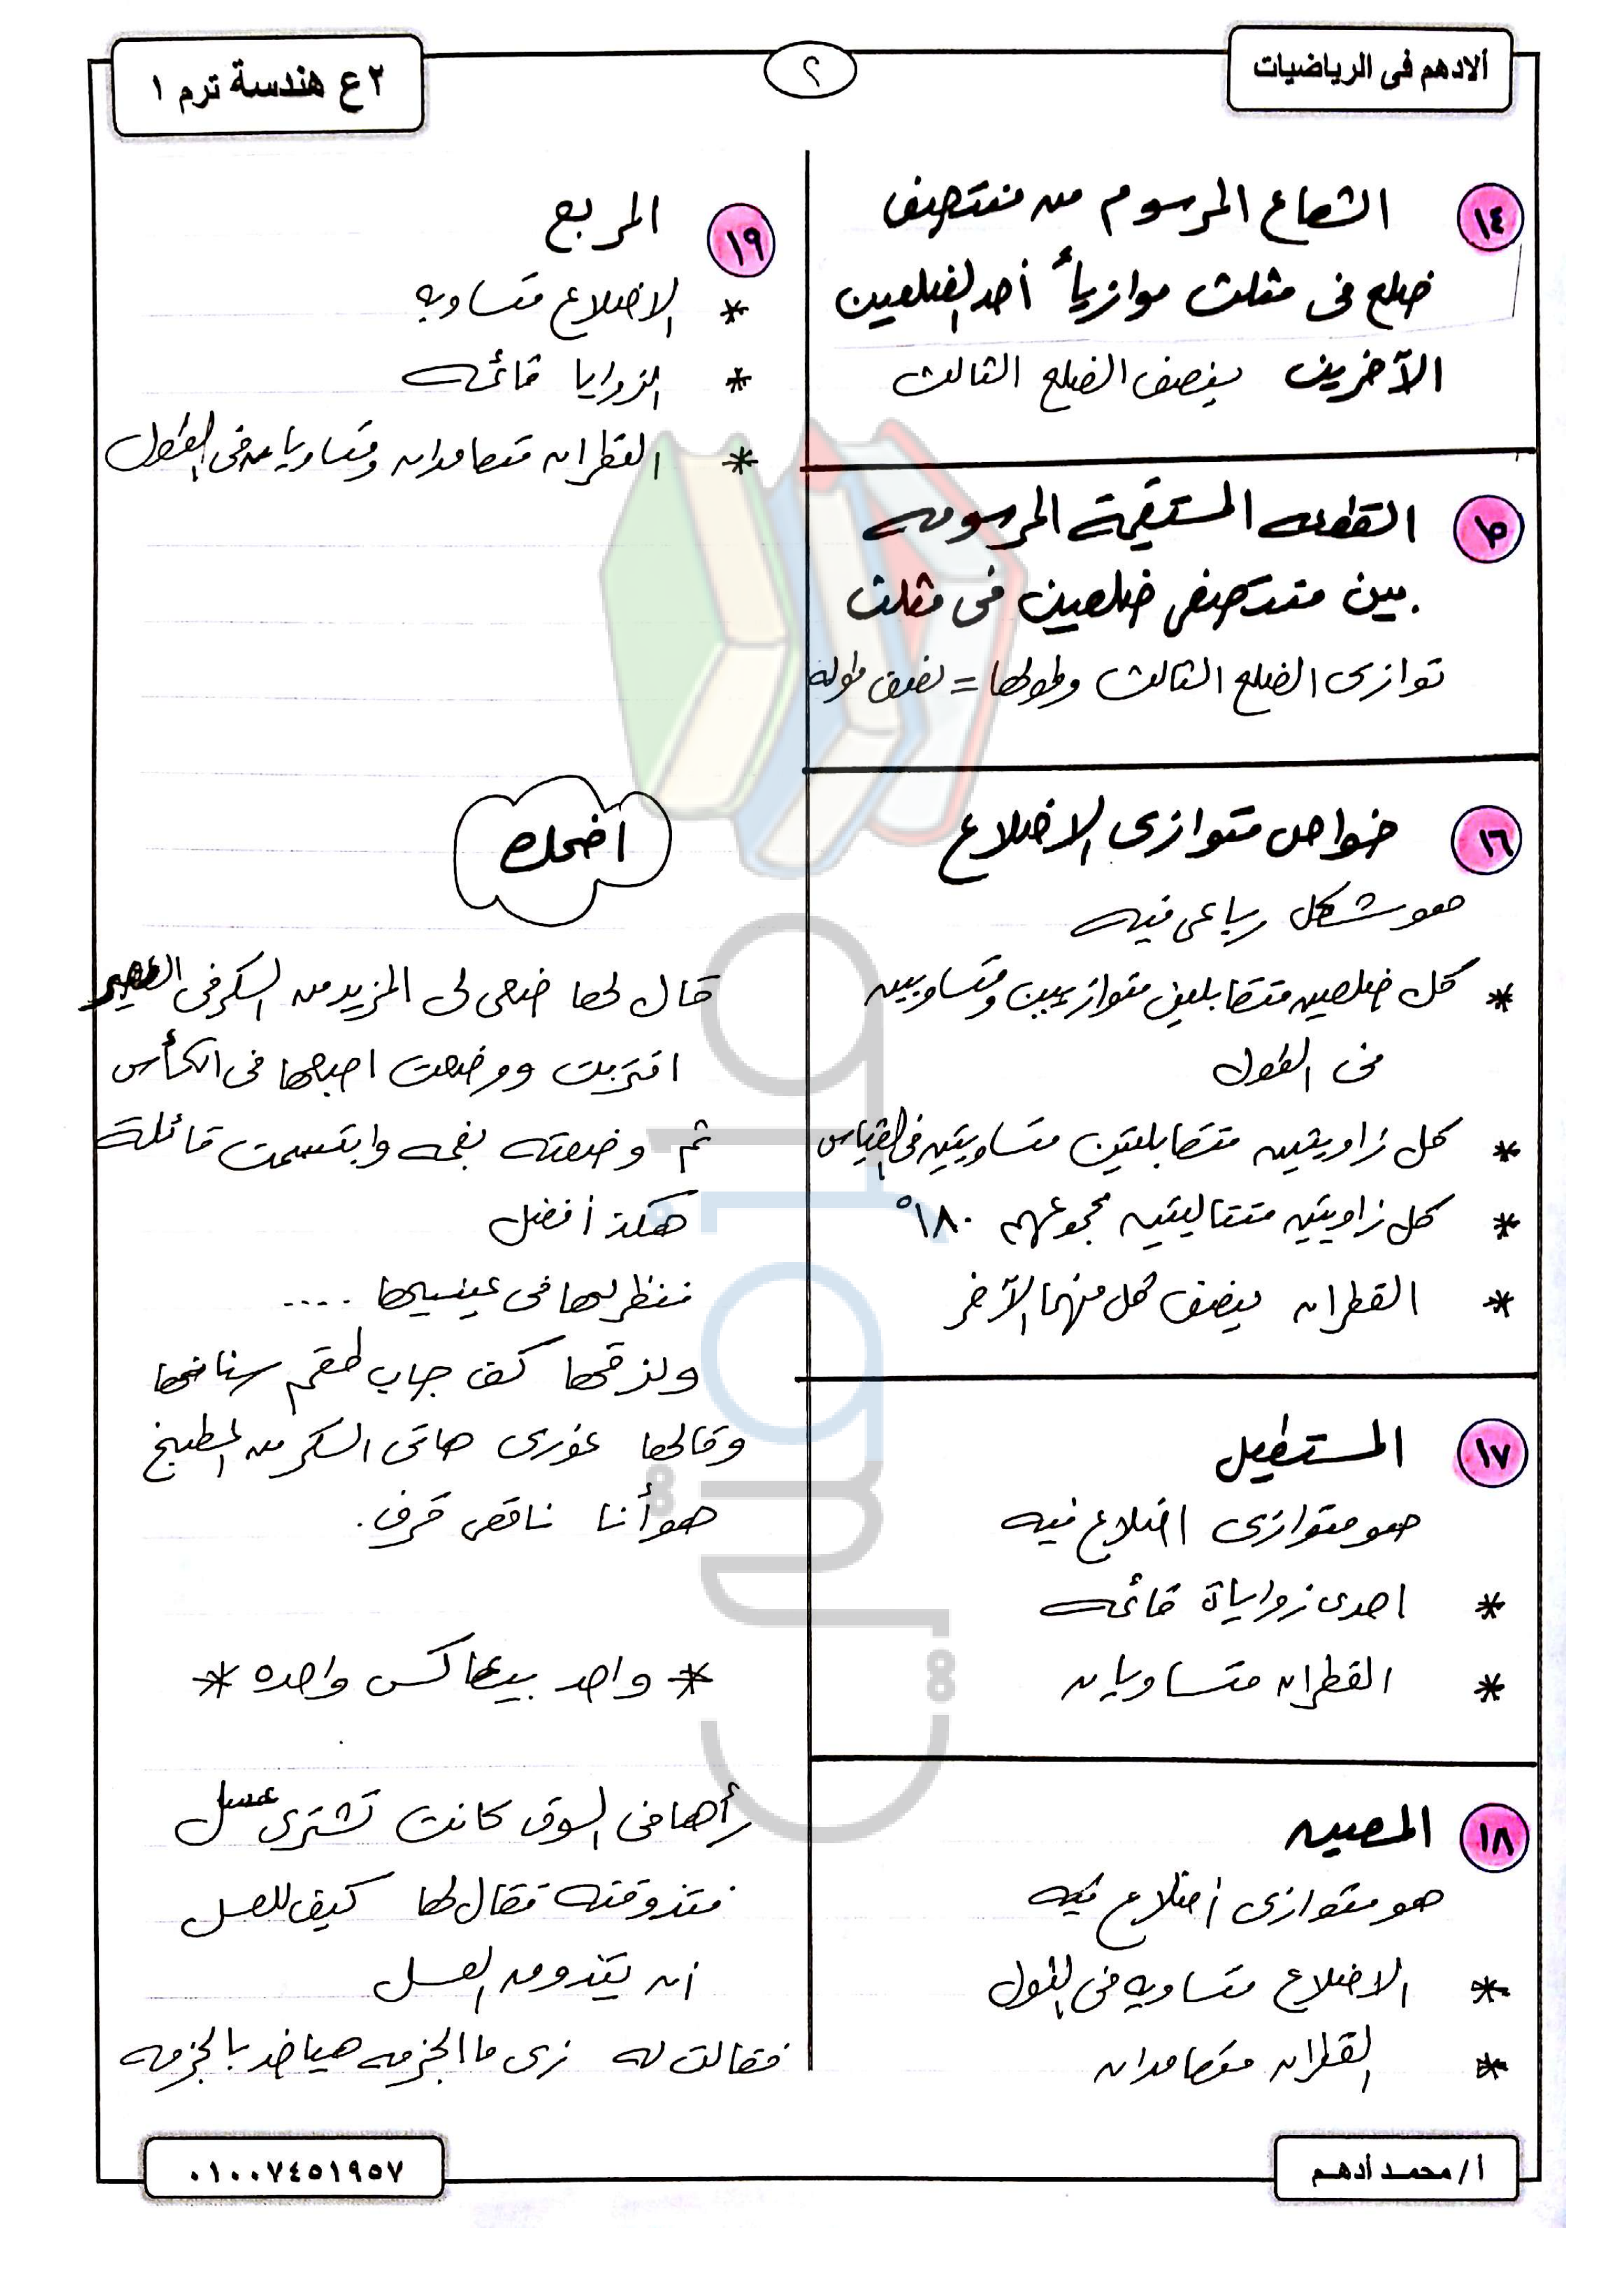 ألادهم فى الرياضيات
٢
٢ ع هندسة ترم ١
١٤ الشعاع المرسوم من منتصف
ضلع فى مثلث موازياً أحد الضلعين
الآخرين ينصف الضلع الثالث
١٥ القطعه المستقيمة المرسومه
بين منتصفى ضلعين فى مثلث
توازى الضلع الثالث وطولها = نصف طوله
١٦ خواص متوازى الاضلاع
هو شكل رباعى فيه
* كل ضلعين متقابلين متوازيين ومتساويين
فى الطول
* كل زاويتين متقابلتين متساويتين فى القياس
* كل زاويتين متتاليتين مجموعهم ١٨٠°
* القطران ينصف كل منهما الآخر
١٧ المستطيل
هو متوازى اضلاع فيه
* احدى زواياة قائمه
* القطران متساويان
١٨ المعين
هو متوازى أضلاع فيه
* الاضلاع متساويه فى الطول
* القطران متعامدان
١٩ المربع
* الاضلاع متساويه
* الزوايا قائمه
* القطران متعامدان ومتساويان فى الطول
اضحك
قال لها ضعى لى المزيد من السكر فى العصير
اقتربت ووضعت اصبعها فى الكأس
ثم وضعته بفمه وابتسمت قائلة
هكذ أفضل
فنظر لها فى عينيها ....
ولزقها كف جاب طقم سنانها
وقالها غورى هاتى السكر من المطبخ
هو أنا ناقص قرف.
* واحد بيعاكس واحده *
رأها فى السوق كانت تشترى عسل
فتذوقته فقال لها كيف للعسل
أن يتذوق العسل
فقالت له زى ما الجزمه هياخد بالجزمه
أ / محمد أدهم
٠١٠٠٧٤٥١٩٥٧